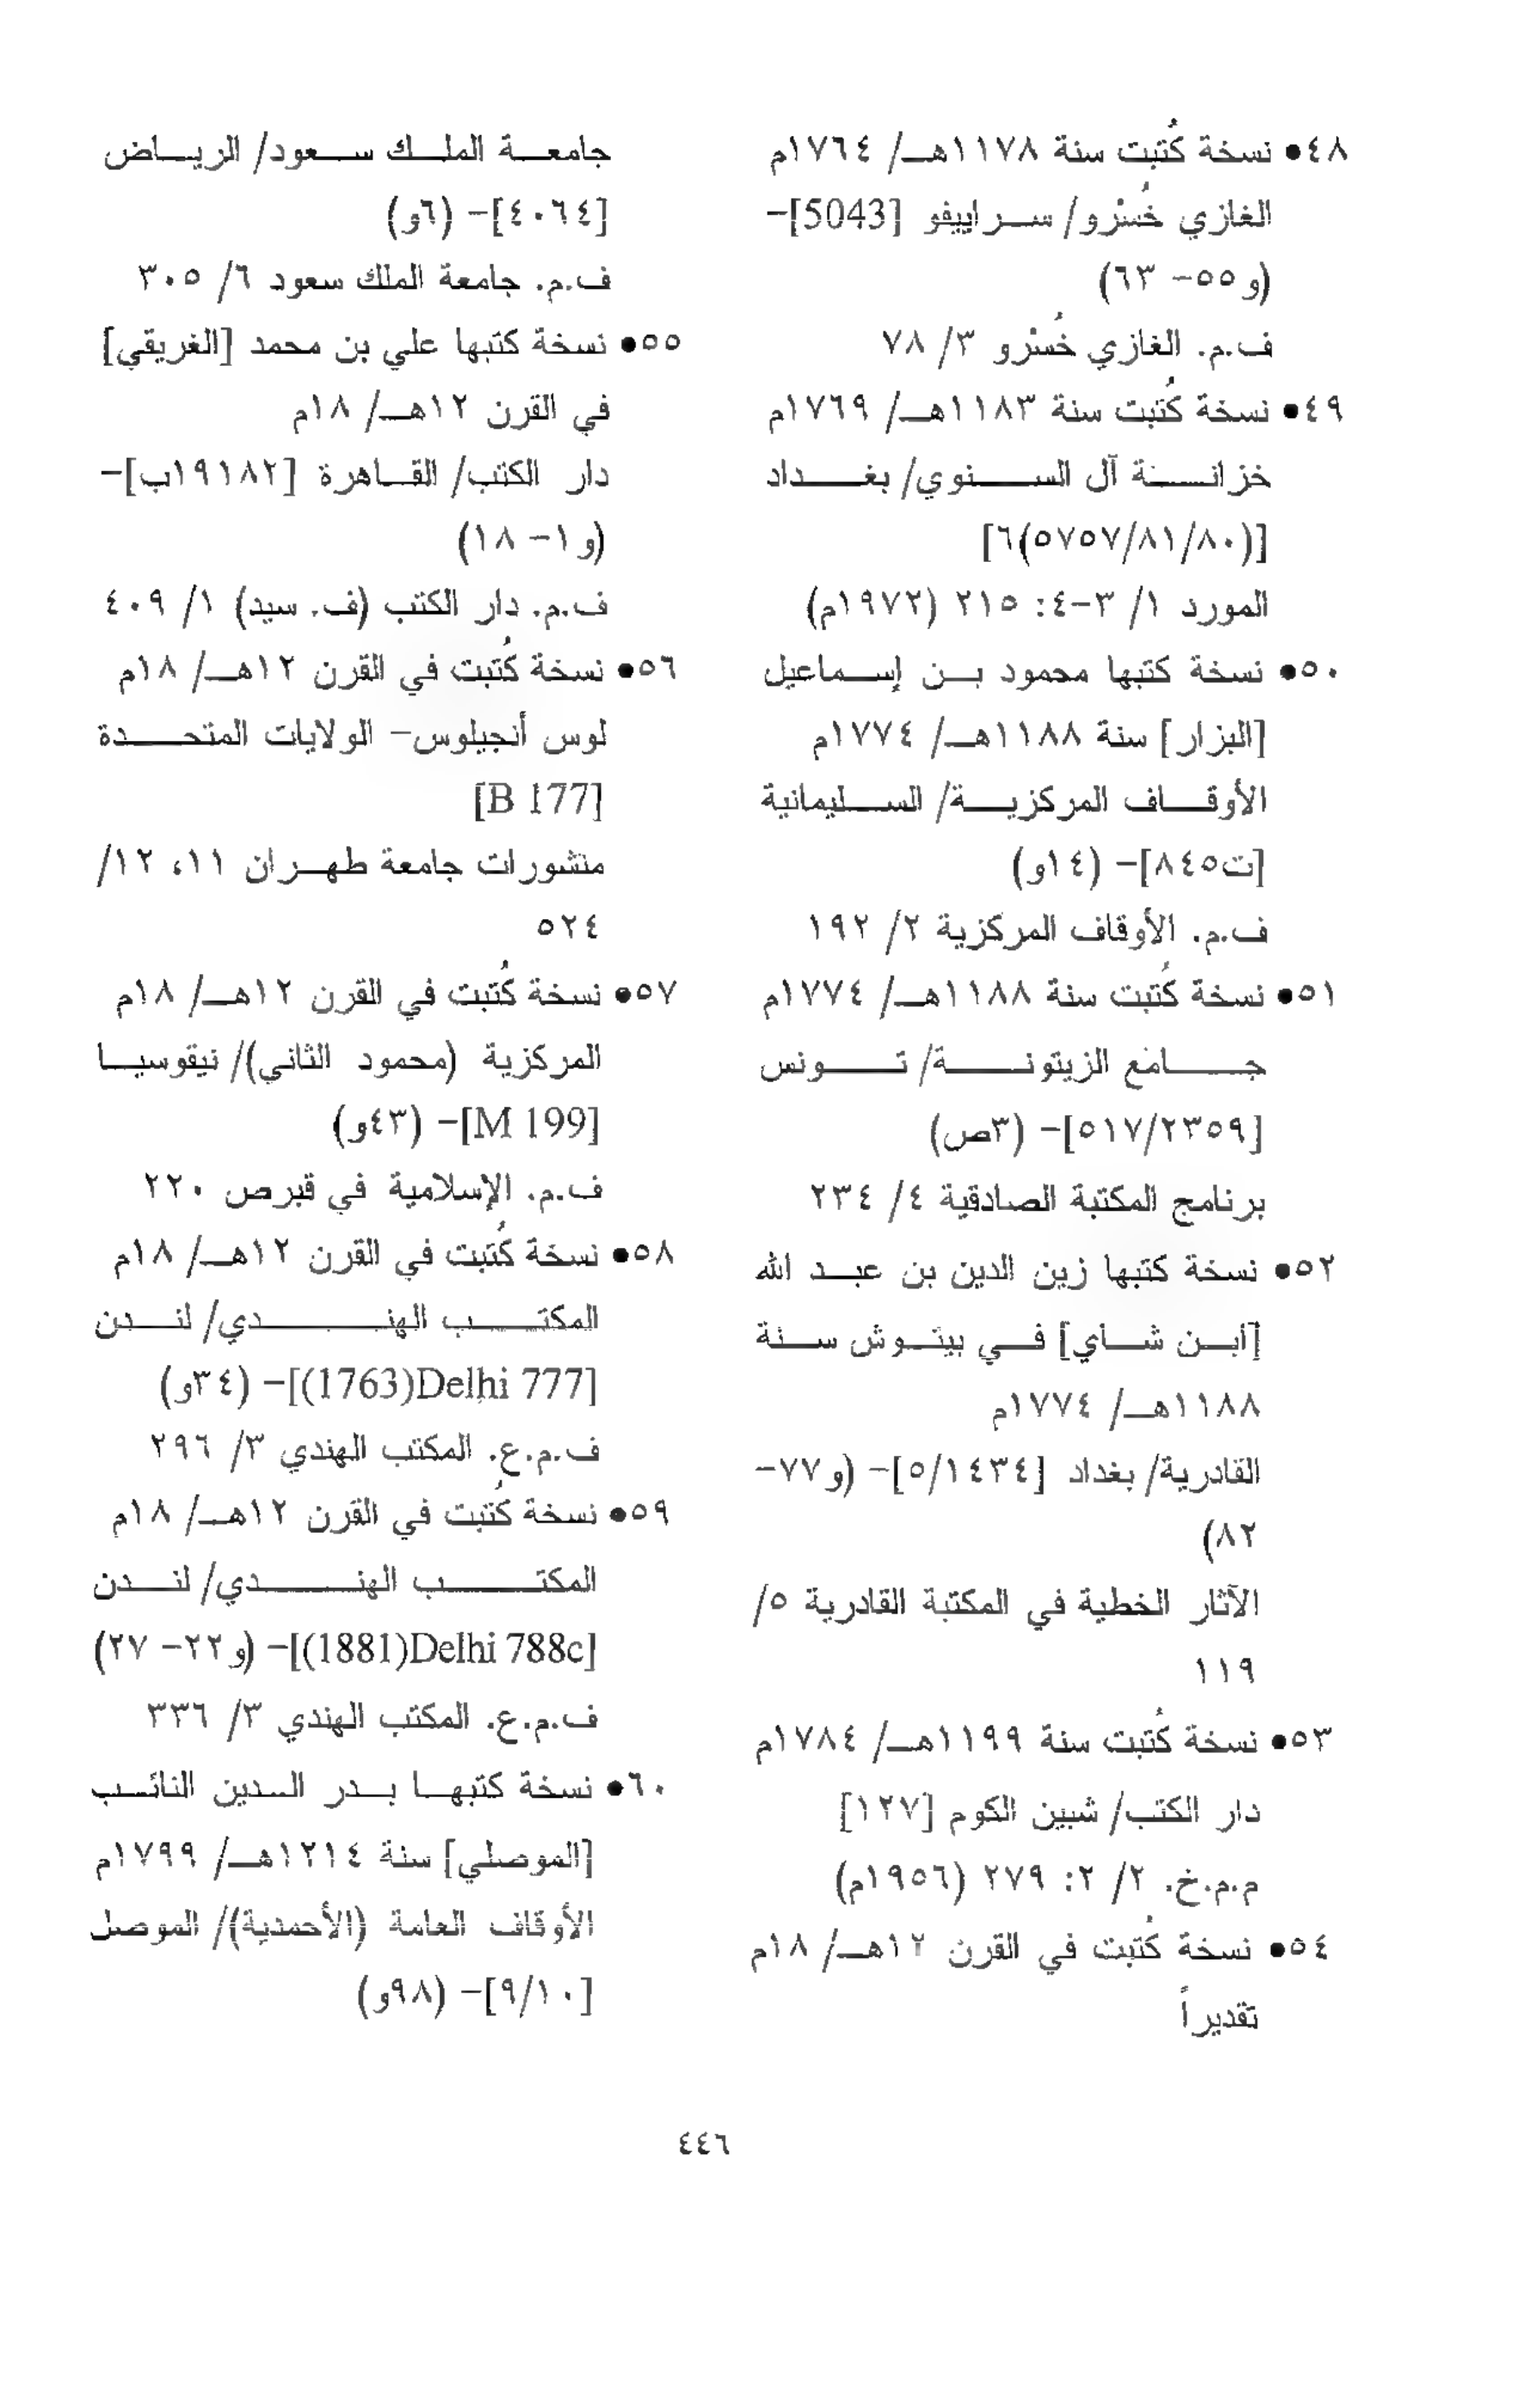 ٤٨● نسخة كُتبت سنة ١١٧٨هـ/ ١٧٦٤م
الغازي خُسْرو/ سراييفو [5043]-
(و٥٥- ٦٣)
ف.م. الغازي خُسْرو ٣/ ٧٨
٤٩● نسخة كُتبت سنة ١١٨٣هـ/ ١٧٦٩م
خزانة آل السنوي/ بغداد
[(٥٧٥٧/٨١/٨٠)٦]
المورد ١/ ٣-٤: ٢١٥ (١٩٧٢م)
٥٠● نسخة كتبها محمود بن إسماعيل
[البزار] سنة ١١٨٨هـ/ ١٧٧٤م
الأوقاف المركزية/ السليمانية
[ت٨٤٥]- (١٤و)
ف.م. الأوقاف المركزية ٢/ ١٩٢
٥١● نسخة كُتبت سنة ١١٨٨هـ/ ١٧٧٤م
جامع الزيتونة/ تونس
[٥١٧/٢٣٥٩]- (٣ص)
برنامج المكتبة الصادقية ٤/ ٢٣٤
٥٢● نسخة كتبها زين الدين بن عبد الله
[ابن شاي] في بيتوش سنة
١١٨٨هـ/ ١٧٧٤م
القادرية/ بغداد [٥/١٤٣٤]- (و٧٧-
٨٢)
الآثار الخطية في المكتبة القادرية ٥/
١١٩
٥٣● نسخة كُتبت سنة ١١٩٩هـ/ ١٧٨٤م
دار الكتب/ شبين الكوم [١٢٧]
م.م.خ. ٢/ ٢: ٢٧٩ (١٩٥٦م)
٥٤● نسخة كُتبت في القرن ١٢هـ/ ١٨م
تقديراً
جامعة الملك سعود/ الرياض
[٤٠٦٤]- (٦و)
ف.م. جامعة الملك سعود ٦/ ٣٠٥
٥٥● نسخة كتبها علي بن محمد [الغريقي]
في القرن ١٢هـ/ ١٨م
دار الكتب/ القاهرة [١٩١٨٢ب]-
(و١- ١٨)
ف.م. دار الكتب (ف. سيد) ١/ ٤٠٩
٥٦● نسخة كُتبت في القرن ١٢هـ/ ١٨م
لوس أنجيلوس- الولايات المتحدة
[B 177]
منشورات جامعة طهران ١١، ١٢/
٥٢٤
٥٧● نسخة كُتبت في القرن ١٢هـ/ ١٨م
المركزية (محمود الثاني)/ نيقوسيا
[M 199]- (٤٣و)
ف.م. الإسلامية في قبرص ٢٢٠
٥٨● نسخة كُتبت في القرن ١٢هـ/ ١٨م
المكتب الهندي/ لندن
[(1763)Delhi 777]- (٣٤و)
ف.م.ع. المكتب الهندي ٣/ ٢٩٦
٥٩● نسخة كُتبت في القرن ١٢هـ/ ١٨م
المكتب الهندي/ لندن
[(1881)Delhi 788c]- (و٢٢- ٢٧)
ف.م.ع. المكتب الهندي ٣/ ٣٣٦
٦٠● نسخة كتبها بدر الدين النائب
[الموصلي] سنة ١٢١٤هـ/ ١٧٩٩م
الأوقاف العامة (الأحمدية)/ الموصل
[٩/١٠]- (٩٨و)
٤٤٦